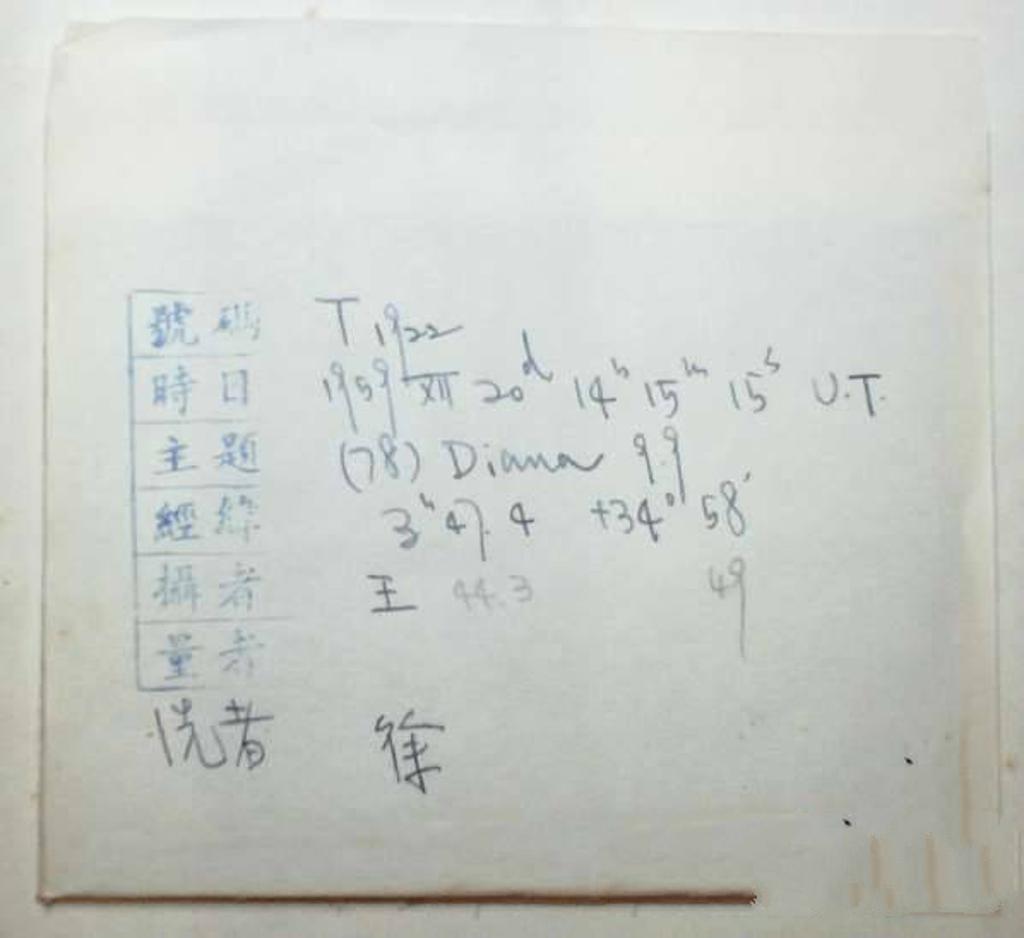 號碼 T 1922
時日 1959 XII 20d 14h 15m 15s U.T.
主題 (78) Diana 9.9
經緯 3h 47.4 +34° 58′
攝者 王 44.3 49
量者
洗者 徐